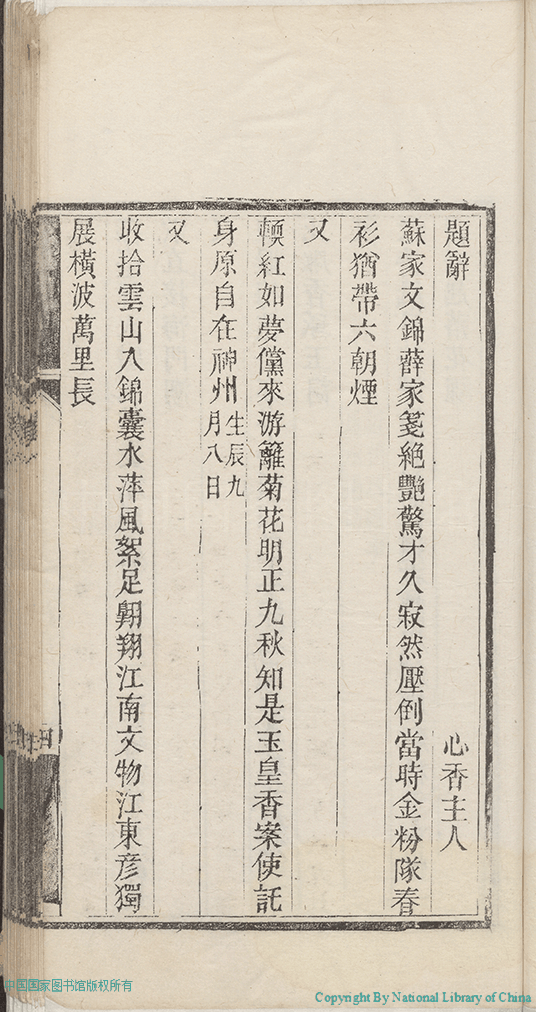 題辭 心香主人
蘇家文錦薛家箋絕艷驚才久寂然壓倒當時金粉隊春
衫猶帶六朝煙
又
輭紅如夢儻來游籬菊花明正九秋知是玉皇香案使託
身原自在神州生辰九月八日
又
收拾雲山入錦囊水萍風絮足翱翔江南文物江東彥獨
展橫波萬里長
中国国家图书馆版权所有
Copyright By National Library of China